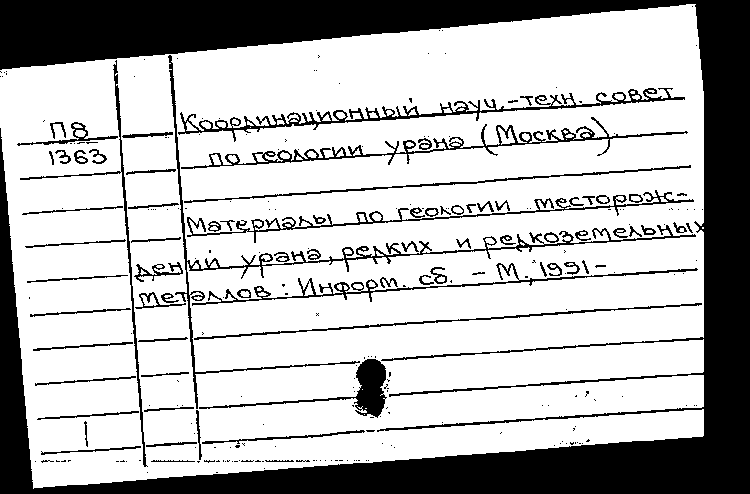 П8
1363
Координационный науч.-техн. совет
по геологии урана (Москва).
Материалы по геологии месторож-
дений урана, редких и редкоземельных
металлов: Информ. сб. - М., 1991-